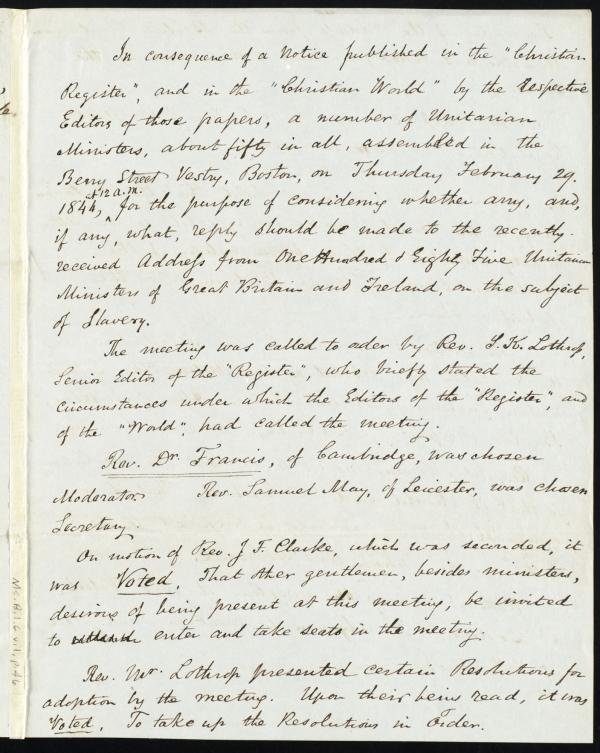 In consequence of a Notice published in the "Christian
Register", and in the "Christian World" by the respective
Editors of those papers, a number of Unitarian
Ministers, about fifty in all, assembled in the
Berry Street Vestry, Boston, on Thursday February 29.
at 12 a.m.
1844, ^ for the purpose of considering whether any, and,
if any, what, reply should be made to the recently
received Address from One Hundred & Eighty Five Unitarian
Ministers of Great Britain and Ireland, on the subject
of Slavery.
The meeting was called to oder by Rev. S. K. Lothrop,
Senior Editor of the "Register", who briefly stated the
circumstances under which the Editors of the "Register", and
of the "World", had called the meeting.
Rev. Dr. Francis, of Cambridge, was chosen
Moderator. Rev. Samuel May, of Leicester, was chosen
Secretary.
On motion of Rev. J. F. Clarke, which was seconded, it
was Voted, That other gentlemen, besides ministers,
desirous of being present at this meeting, be invited
to enter and take seats in the meeting.
Rev. Mr. Lothrop presented certain Resolutions for
adoption by the meeting. Upon their being read, it was
Voted, To take up the Resolutions in Order.
Ms.B.1.6 v.1, p.46